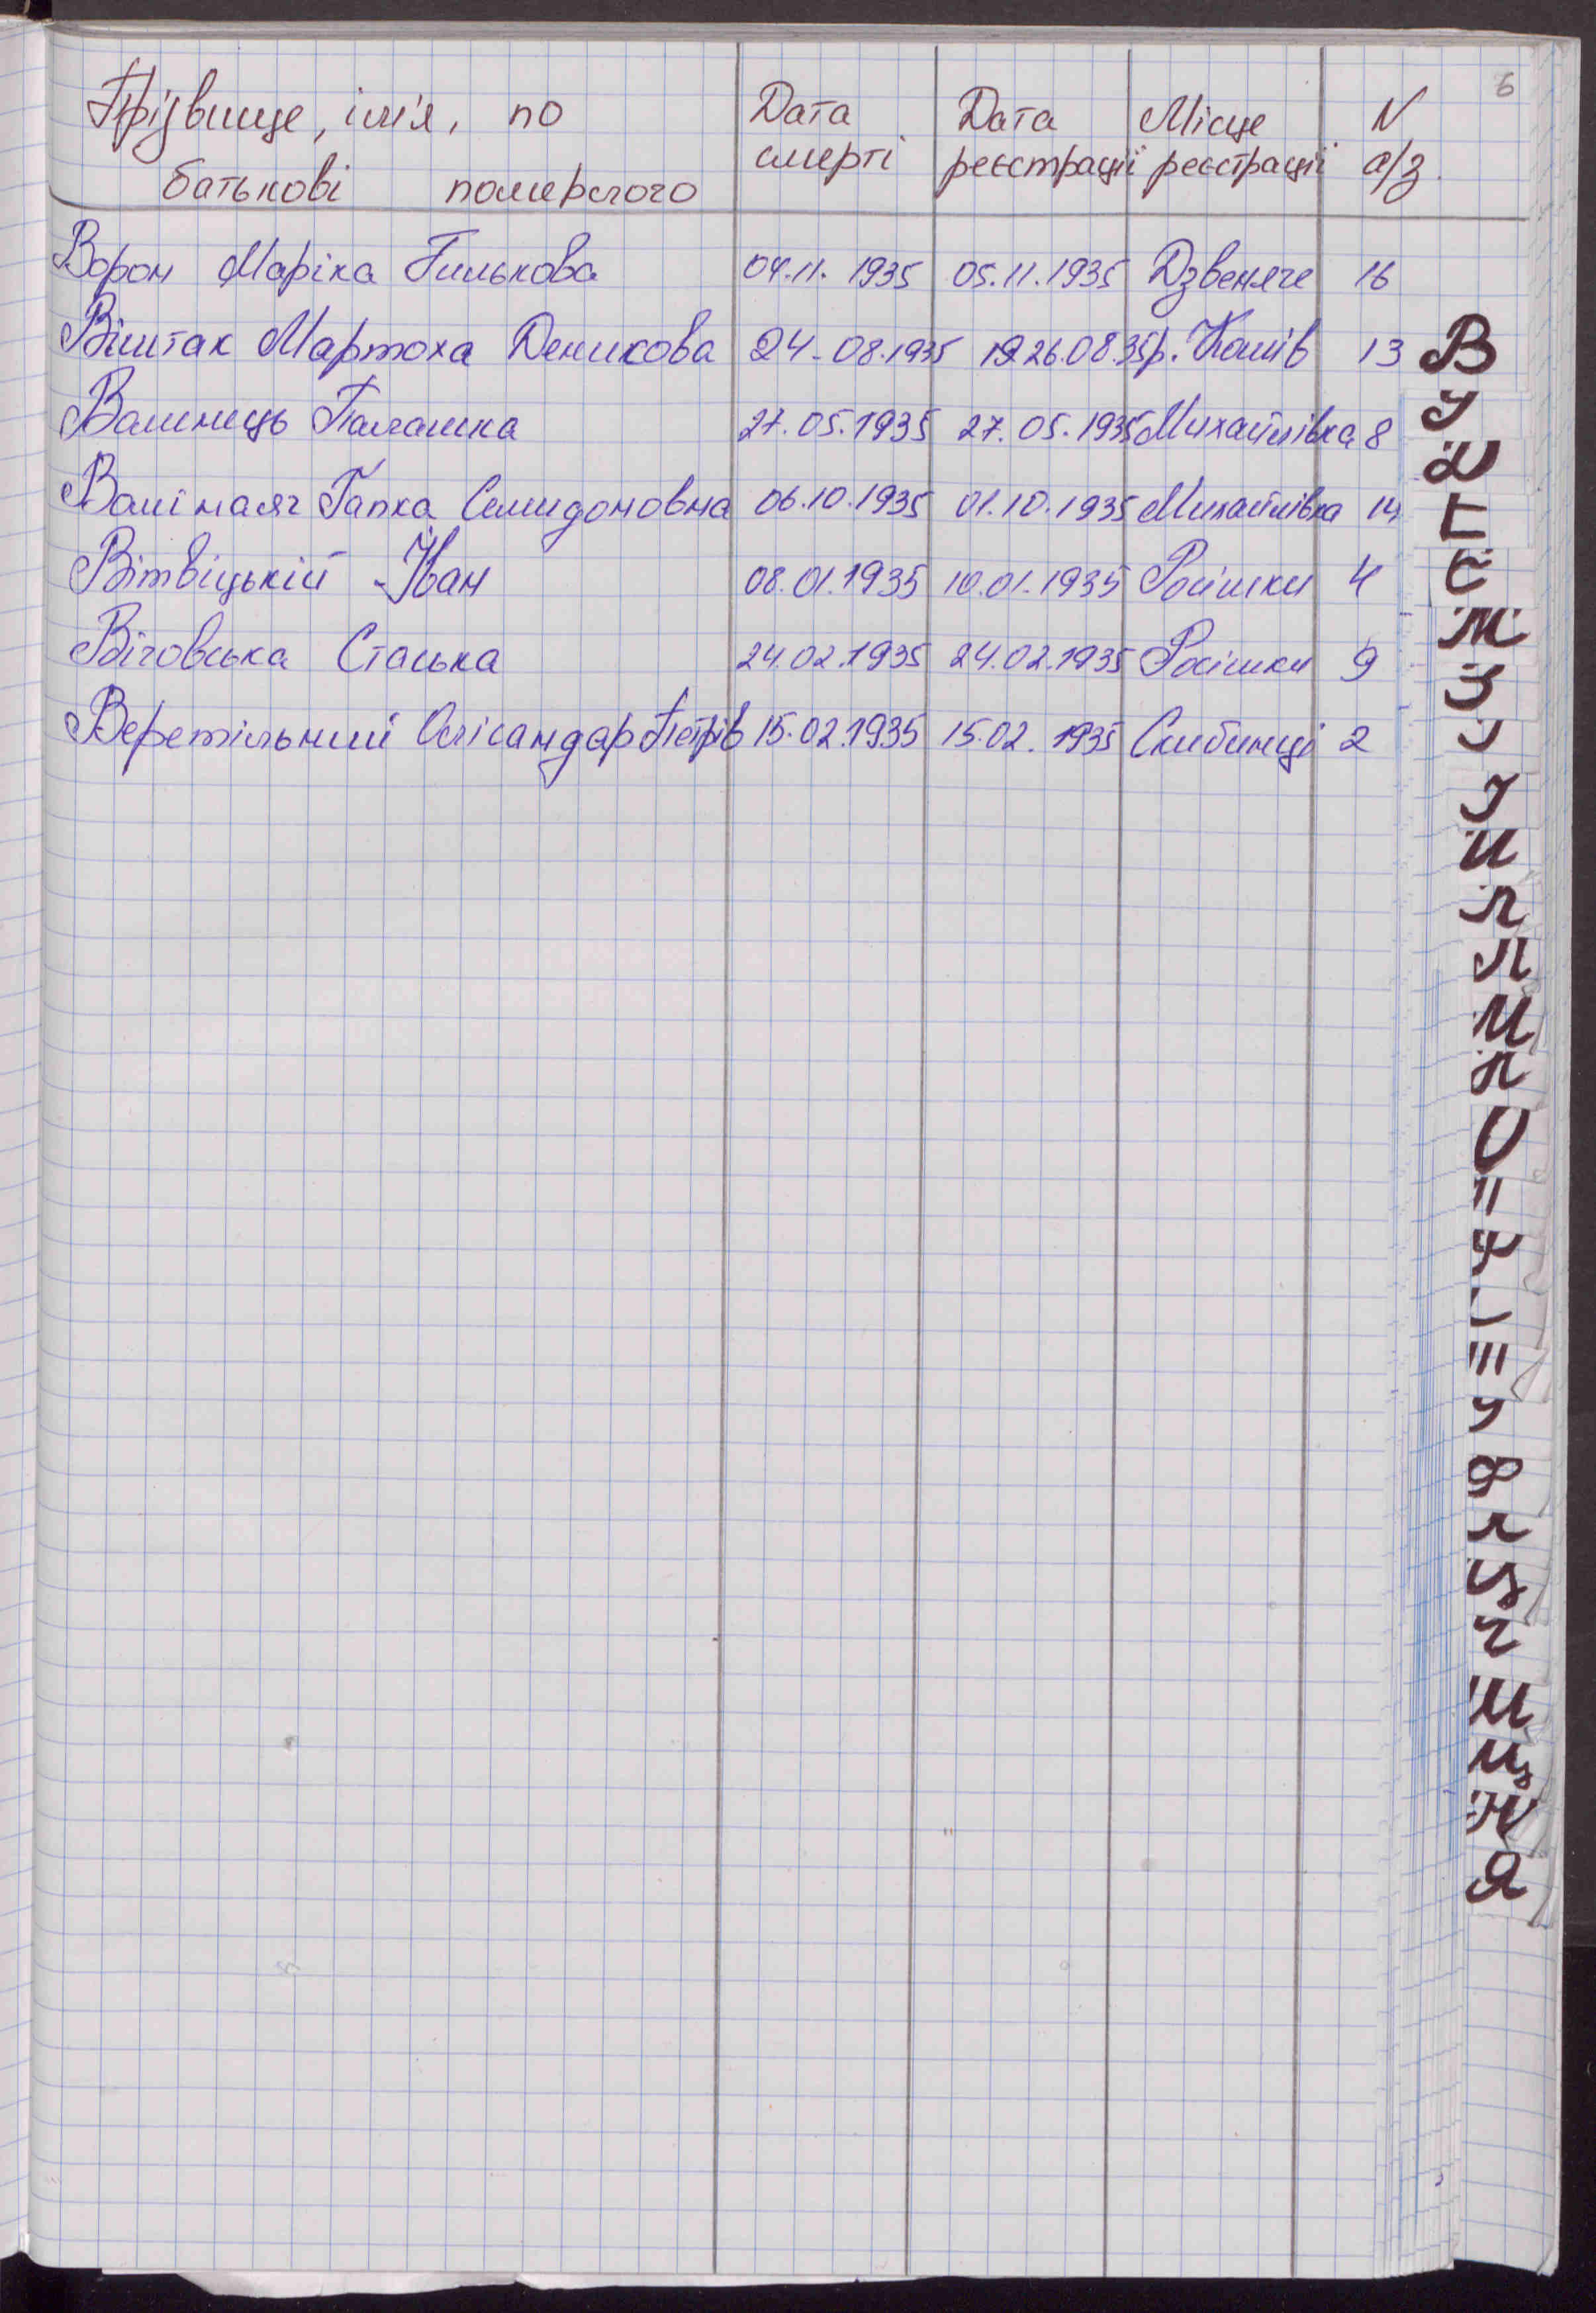 6
Прізвище, ім'я, по
батькові померлого
Дата
смерті
Дата
реєстрації
Місце
реєстрації
N
а/з.
Ворон Маріка Гилькова 04.11.1935 05.11.1935 Дзвеняче 16
Віштак Мартоха Деникова 24-08.1935 26.08.35р. Кошів 13
Вашнець Палашка 27.05.1935 27.05.1935 Михайлівка 8
Гапка 06.10.1935 01.10.1935 Михайлівка 14
Вітвіцькій Іван 08.01.1935 10.01.1935 Росішки 4
Віговська Стаська 24.02.1935 24.02.1935 Росішки 9
Веретільний Олісандар Петрів 15.02.1935 15.02.1935 Скибинці 2
В
Е
Ж
З
И
М
О
У
Ф
Ц
Ч
Ш
Щ
Ю
Я